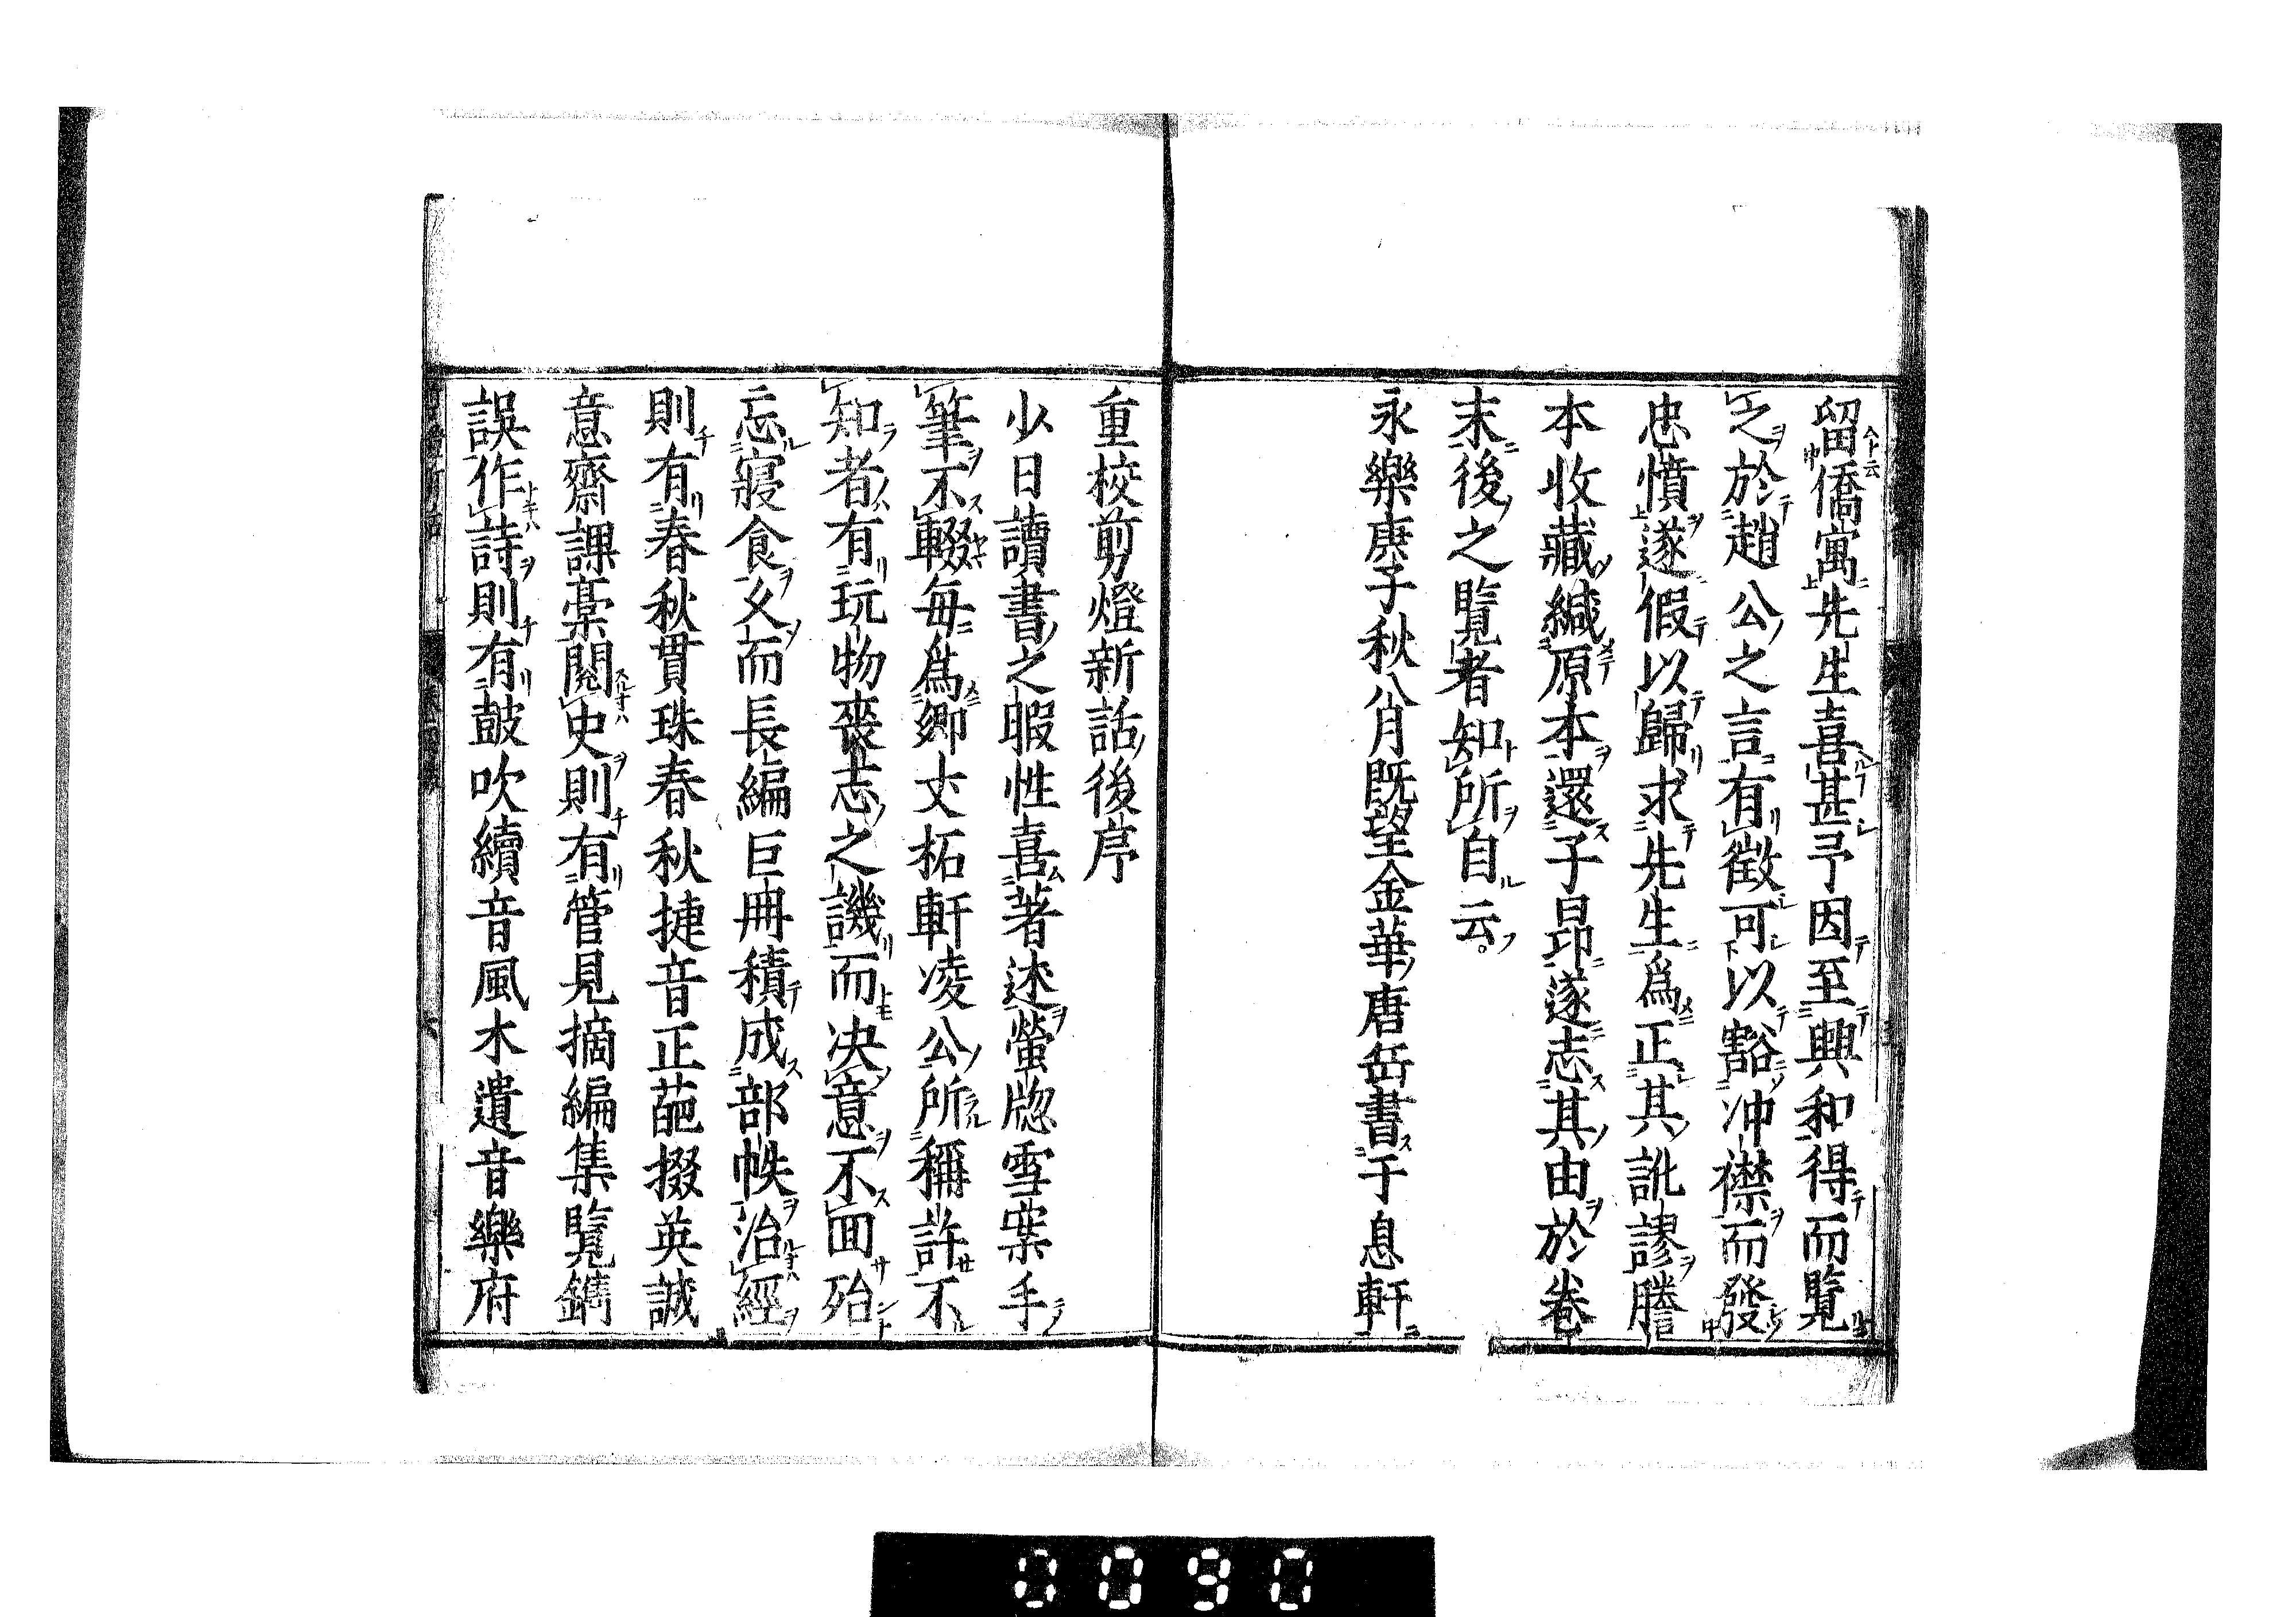 留僑寓先生喜甚予因至興和得而覽
之於趙公之言有徵可以豁冲襟而發
忠憤遂假以歸求先生爲正其訛謬謄
本收藏緘原本還子昂遂志其由於卷
末後之覽者知所自云
永樂庚子秋八月既望金華唐岳書于息軒
重校剪燈新話後序
少日讀書之暇性喜著述螢牕雪案手
筆不輟每爲鄉丈柘軒凌公所稱許不
知者有玩物喪志之譏而决意不回殆
忘寢食久而長編巨冊積成部帙治經
則有春秋貫珠春秋捷音正葩掇英誠
意齋課藁閱史則有管見摘編集覽鐫
誤作詩則有鼓吹續音風木遺音樂府
0090